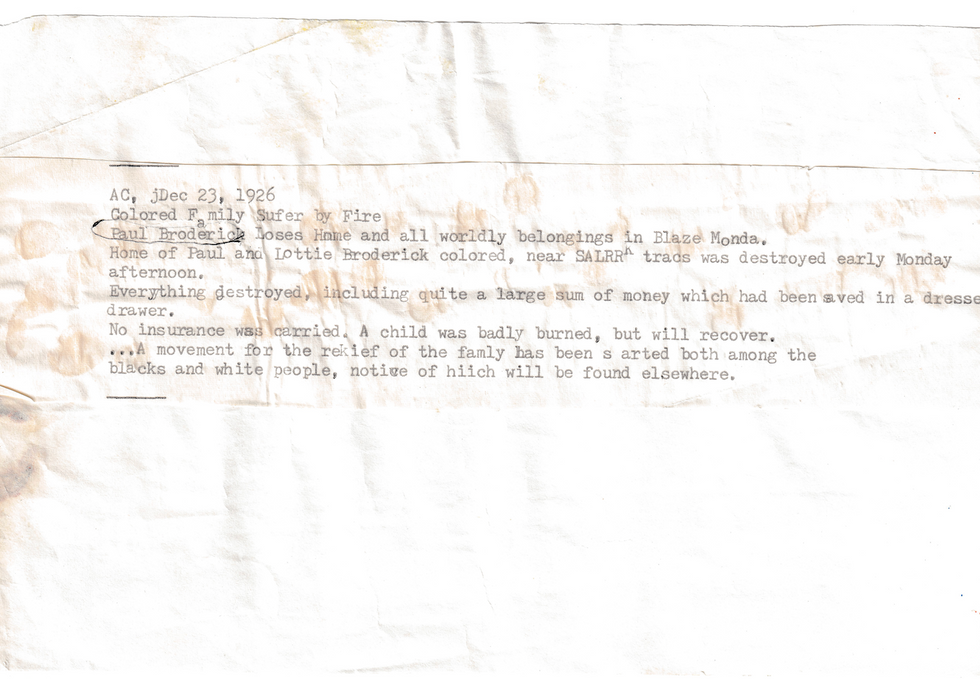 AC, jDec 23, 1926
Colored Family Sufer by Fire
Paul Broderick Loses Hnme and all worldly belongings in Blaze Monda.
Home of Paul and Lottie Broderick colored, near SALRR^ tracs was destroyed early Monday
afternoon.
Everything destroyed, including quite a large sum of money which had been saved in a dresse
drawer.
No insurance was carried. A child was badly burned, but will recover.
...A movement for the rekief of the famly has been s arted both among the
blacks and white people, notice of hiich will be found elsewhere.